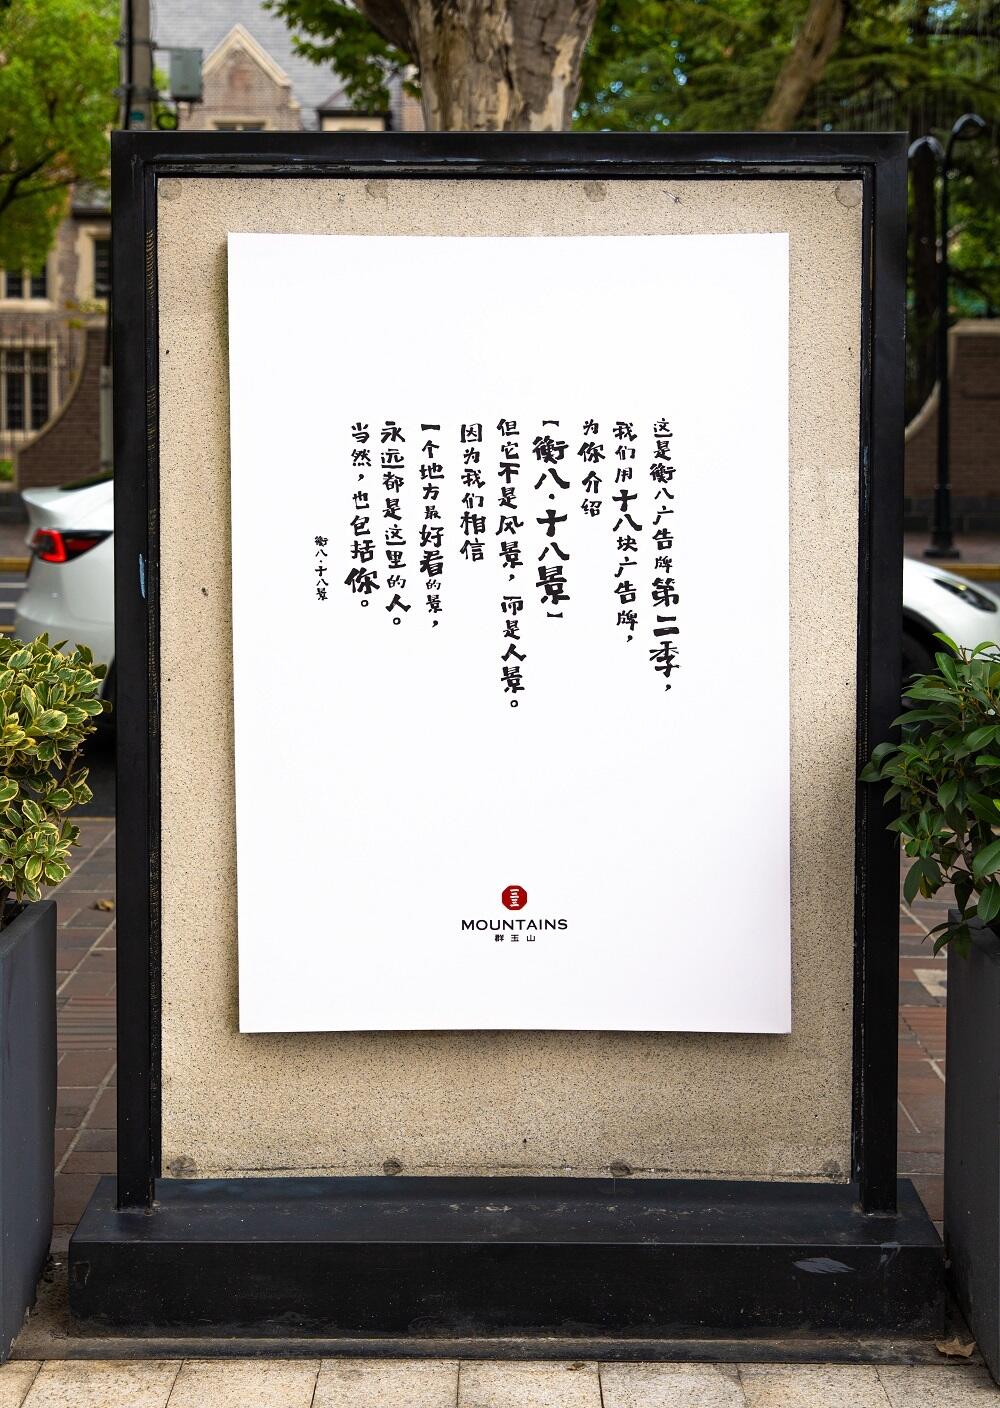 这是衡八广告牌第二季，
我们用十八块广告牌，
为你介绍
【衡八·十八景】
但它不是风景，而是人景。
因为我们相信
一个地方最好看的景，
永远都是这里的人。
当然，也包括你。
衡八·十八景
MOUNTAINS
群玉山